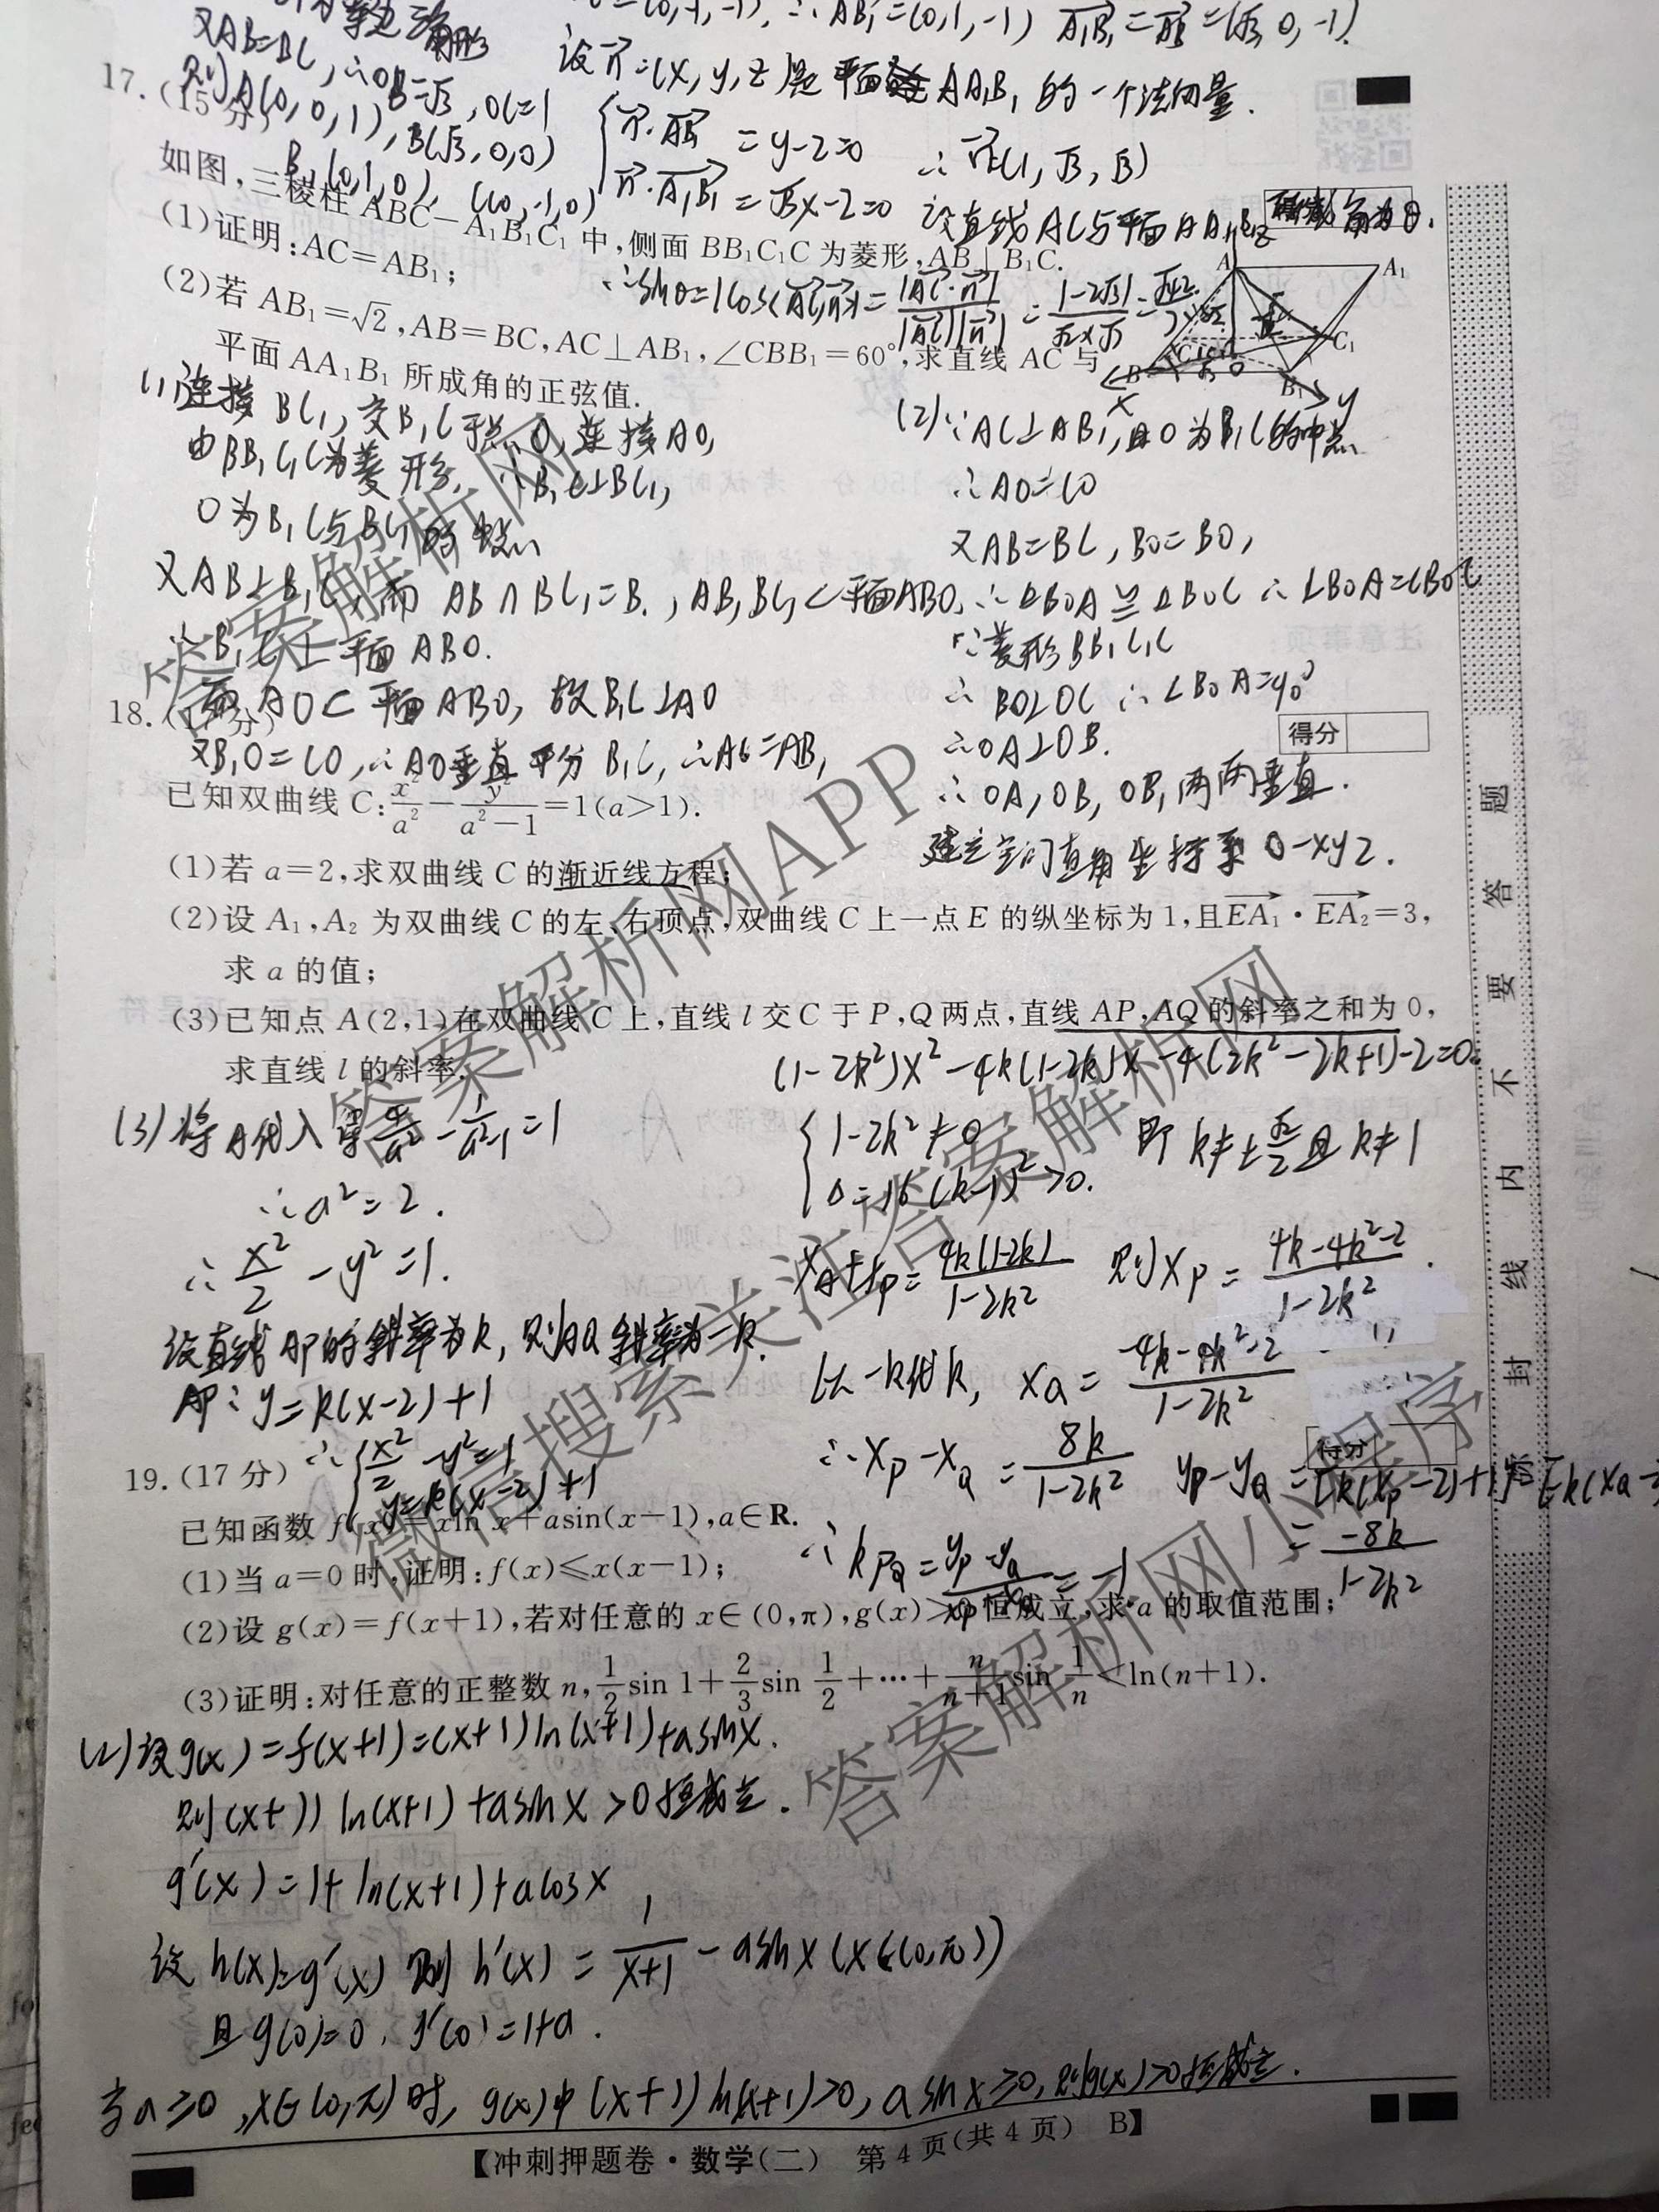 又AB=BC,∴OB=√3,OC=1
则A(0,0,1),B(√3,0,0)
B₁(0,1,0), C(0,-1,0)
∴AB₁=(0,1,-1) A₁B₁=AB=(√3,0,-1).
设n=(x,y,z)是平面AA₁B₁的一个法向量.
{n·AB₁=y-z=0
n·A₁B₁=√3x-z=0 ∴n=(1,√3,√3)
设直线AC与平面AA₁B₁所成角为θ.
∴sinθ=|cos<AC,n>|=|AC·n|/|AC||n|
17.(15分)
如图,三棱柱ABC-A₁B₁C₁中,侧面BB₁C₁C为菱形,AB⊥B₁C.
(1)证明:AC=AB₁;
(2)若AB₁=√2,AB=BC,AC⊥AB₁,∠CBB₁=60°,求直线AC与
平面AA₁B₁所成角的正弦值.
A A₁ C C₁ B B₁ O x y z
(1)连接BC₁,交B₁C于点O,连接AO,
由BB₁C₁C为菱形,∴B₁C⊥BC₁,
O为B₁C与BC₁的中点
又AB⊥B₁C,而AB∩BC₁=B,AB,BC₁⊂平面ABO,
∴B₁C⊥平面ABO.
而AO⊂平面ABO,故B₁C⊥AO
又B₁O=CO,∴AO垂直平分B₁C,∴AC=AB₁
(2)∵AC⊥AB₁,且O为B₁C的中点
∴AO=CO
又AB=BC,BO=BO,
∴△BOA≌△BOC ∴∠BOA=∠BOC
∵菱形BB₁C₁C
∴BO⊥OC ∴∠BOA=90°
∴OA⊥OB.
∴OA,OB,OB₁两两垂直.
建立空间直角坐标系O-xyz.
18.(17分)
得分
已知双曲线C:x²/a²-y²/(a²-1)=1(a>1).
(1)若a=2,求双曲线C的渐近线方程;
(2)设A₁,A₂为双曲线C的左、右顶点,双曲线C上一点E的纵坐标为1,且EA₁·EA₂=3,
求a的值;
(3)已知点A(2,1)在双曲线C上,直线l交C于P,Q两点,直线AP,AQ的斜率之和为0,
求直线l的斜率.
(3)将A代入得4/a²-1/(a²-1)=1
∴a²=2.
∴x²/2-y²=1.
设直线AP的斜率为k,则AQ斜率为-k.
AP:y=k(x-2)+1
∴{x²/2-y²=1
y=k(x-2)+1
(1-2k²)x²-4k(1-2k)x-4(2k²-2k+1)-2=0.
{1-2k²≠0
Δ=16(k-1)²>0. 即k≠±√2/2且k≠1
x_A+x_P=4k(1-2k)/(1-2k²) 则x_P=(4k-4k²-2)/(1-2k²).
以-k代k, x_Q=(-4k-4k²-2)/(1-2k²)
∴x_P-x_Q=8k/(1-2k²) y_P-y_Q=[k(x_P-2)+1]-[-k(x_Q-
=-8k/(1-2k²)
∴k_PQ=(y_P-y_Q)/(x_P-x_Q)=-1
19.(17分)
得分
已知函数f(x)=xln x+asin(x-1),a∈R.
(1)当a=0时,证明:f(x)≤x(x-1);
(2)设g(x)=f(x+1),若对任意的x∈(0,π),g(x)>0恒成立,求a的取值范围;
(3)证明:对任意的正整数n,1/2 sin 1+2/3 sin 1/2+…+n/(n+1) sin 1/n<ln(n+1).
(2)设g(x)=f(x+1)=(x+1)ln(x+1)+asinx.
则(x+1)ln(x+1)+asinx>0恒成立.
g'(x)=1+ln(x+1)+acosx
设h(x)=g'(x)则h'(x)=1/(x+1)-asinx(x∈(0,π))
且g(0)=0,g'(0)=1+a.
当a≥0,x∈(0,π)时,g(x)中(x+1)ln(x+1)>0,asinx≥0,则g(x)>0恒成立.
【冲刺押题卷·数学(二) 第4页(共4页) B】
密封线内不要答题
答案解析网
微信搜索关注答案解析网小程序
答案解析网APP
答案解析网
答案解析网